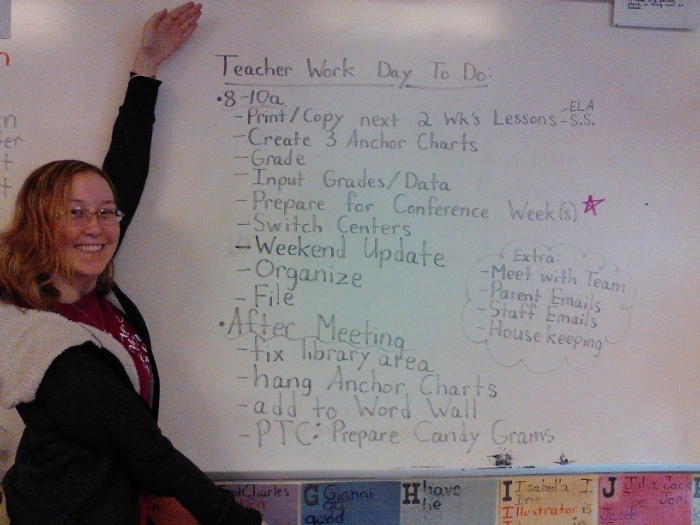 Teacher Work Day To Do:
•8-10a
-Print/Copy next 2 Wk's Lessons-ELA
-S.S.
-Create 3 Anchor Charts
-Grade
-Input Grades/Data
-Prepare for Conference Week(s)
-Switch Centers
-Weekend Update
-Organize
-File
•After Meeting
-fix library area
-hang Anchor Charts
-add to Word Wall
-PTC: Prepare Candy Grams
Extra:
-Meet with Team
-Parent Emails
-Staff Emails
-Housekeeping
Charles
G Gianni
go
good
H have
he
I Isabella I.
Illustrator is
J Julia Jack